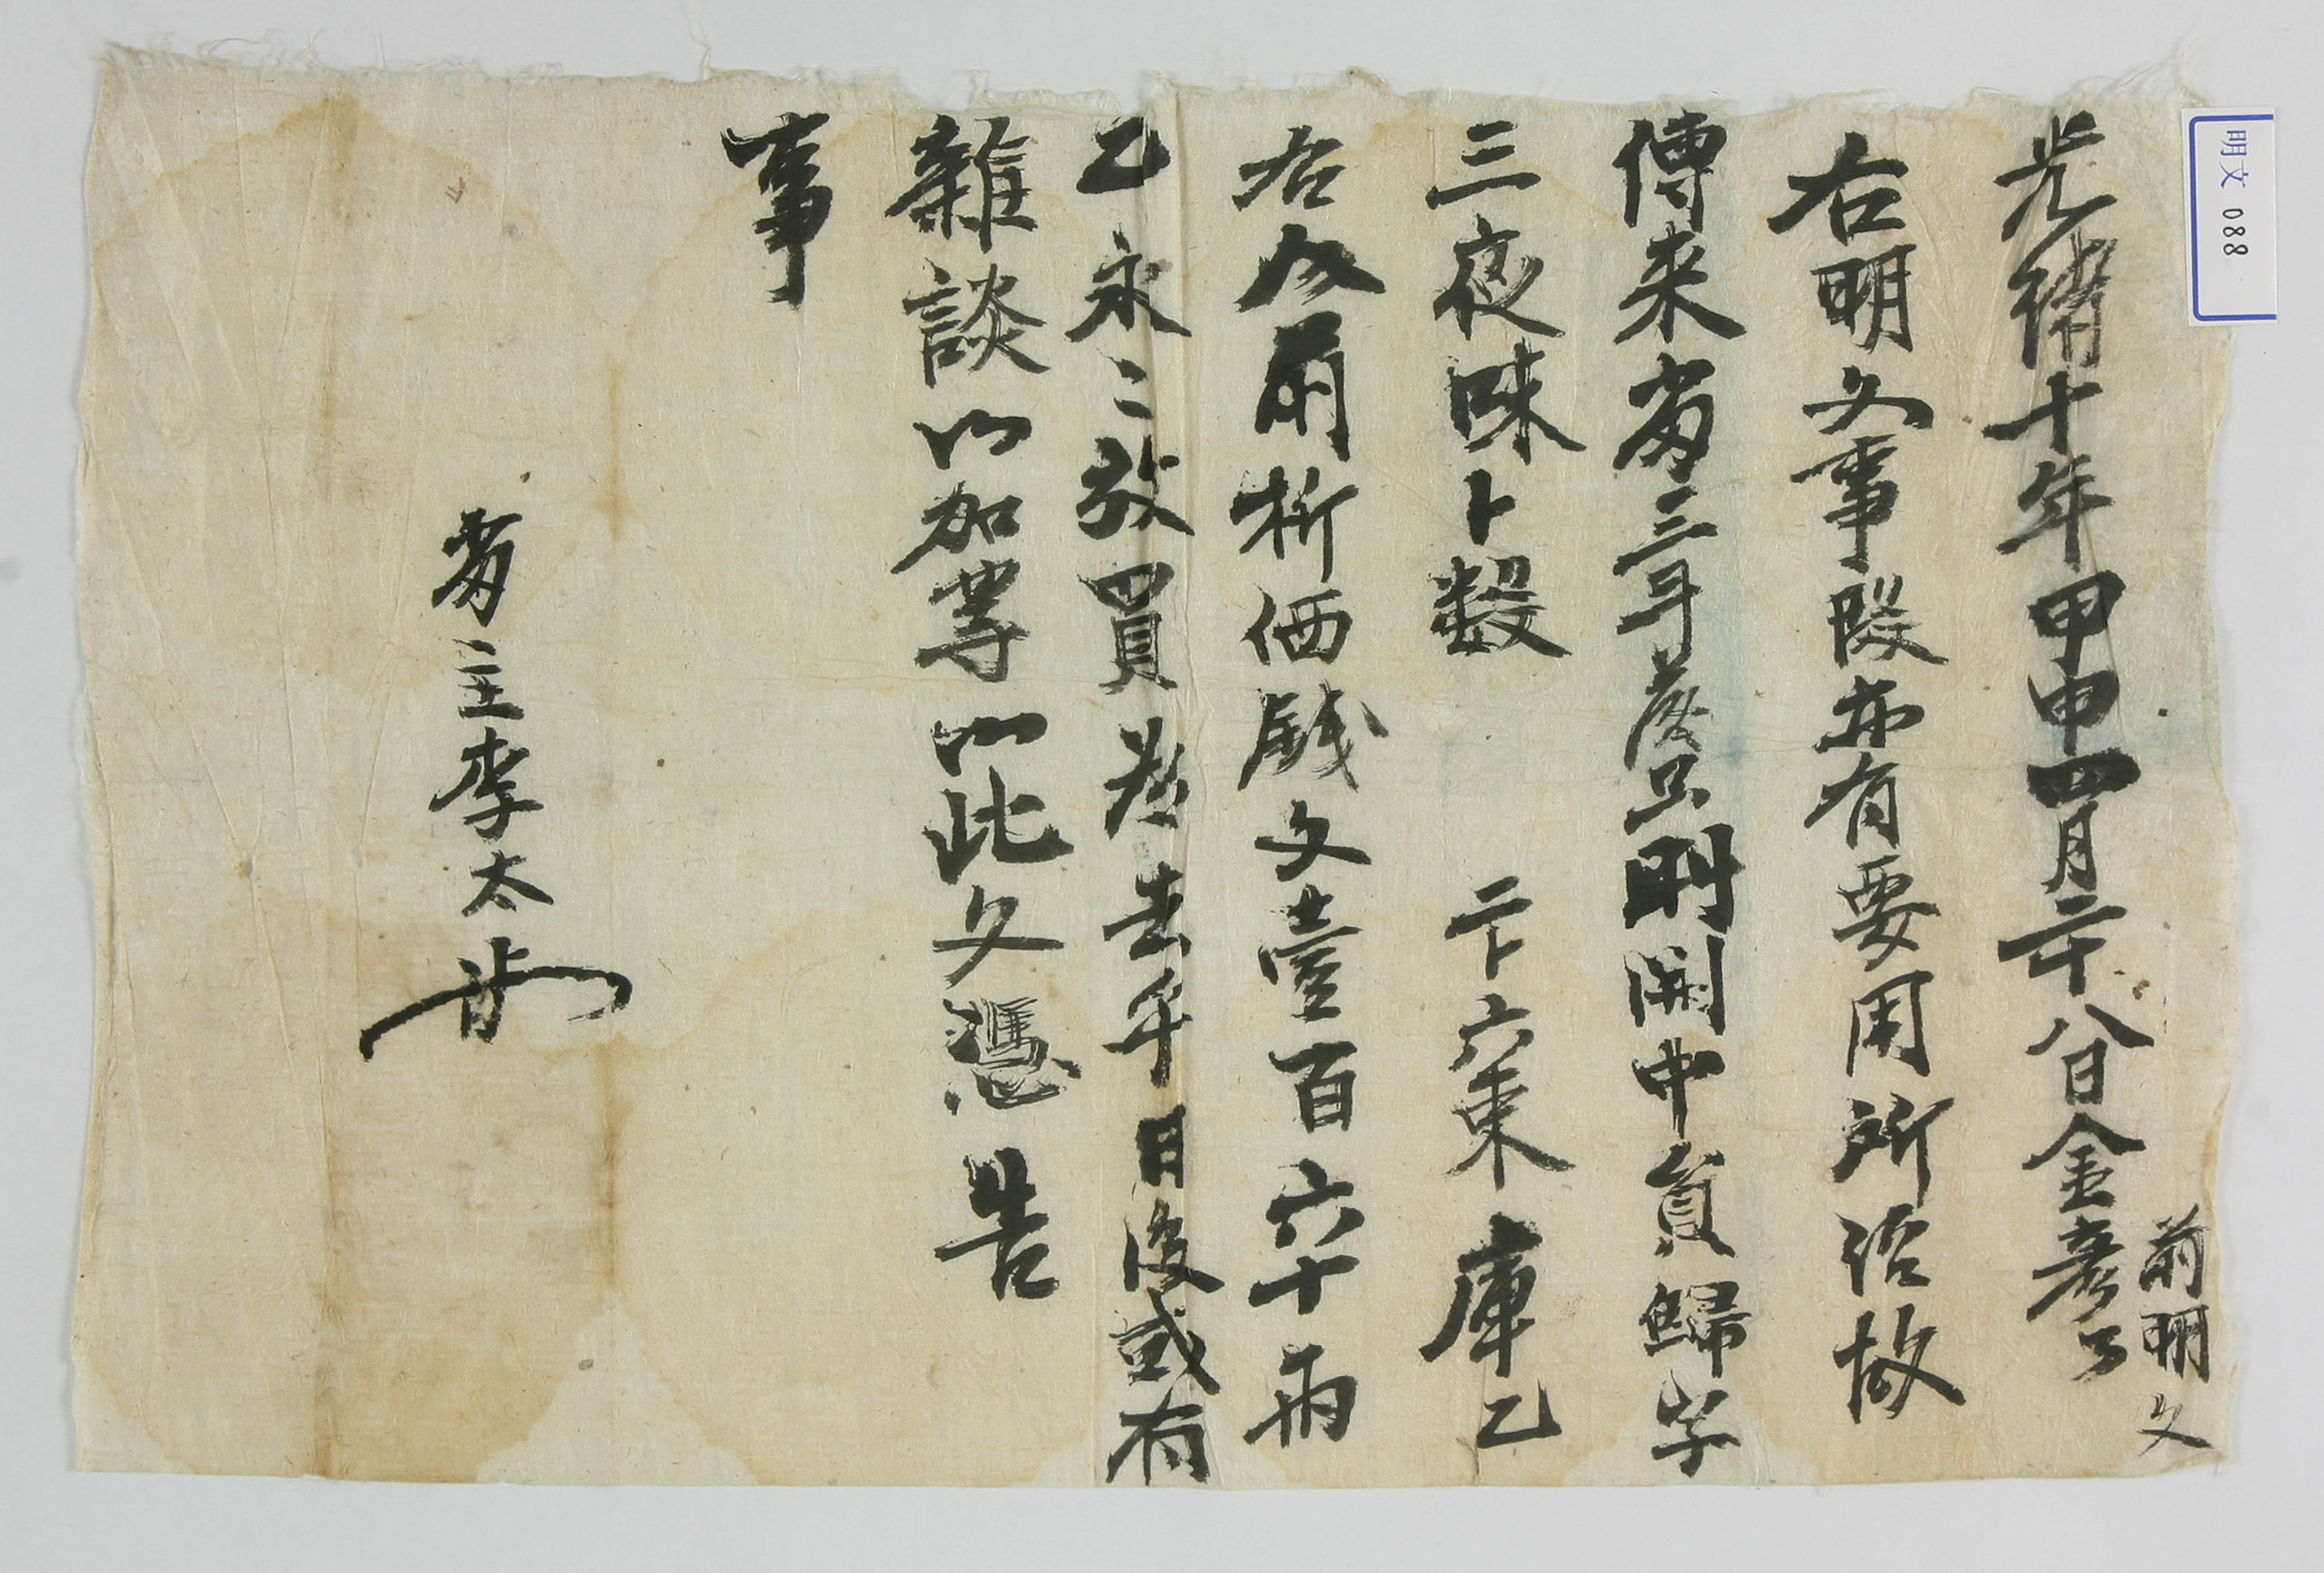 光緖十年甲申四月二十八日金彦了
前明文
右明文事段亦有要用所致故
傳来畓三斗落只明開中員歸字
三夜味卜數 二卜六束庫乙
右人前折価戝文壹百六十兩
乙永〻放買為去乎日後或有
雜談以加䓁以此文憑告
事
畓主李太
明文 088